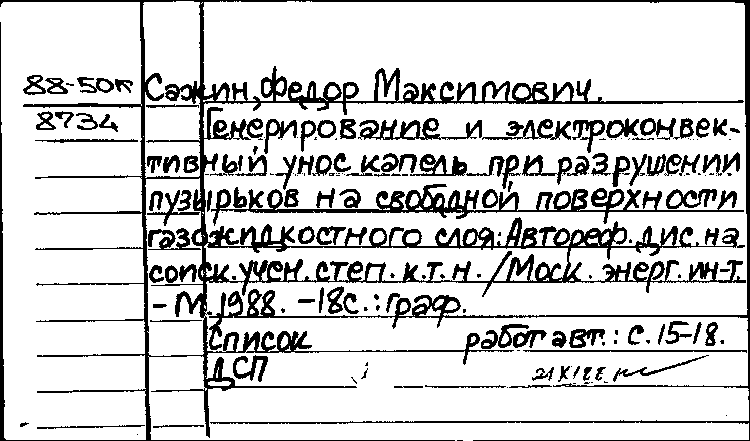 88-50к Сажин, Федор Максимович.
8734 Генерирование и электроконвек-
тивный унос капель при разрушении
пузырьков на свободной поверхности
газожидкостного слоя: Автореф. дис. на
соиск. учен. степ. к.т.н. / Моск. энерг. ин-т.
- М., 1988. - 18с. : граф.
Список работ авт. : с. 15-18.
ДСП